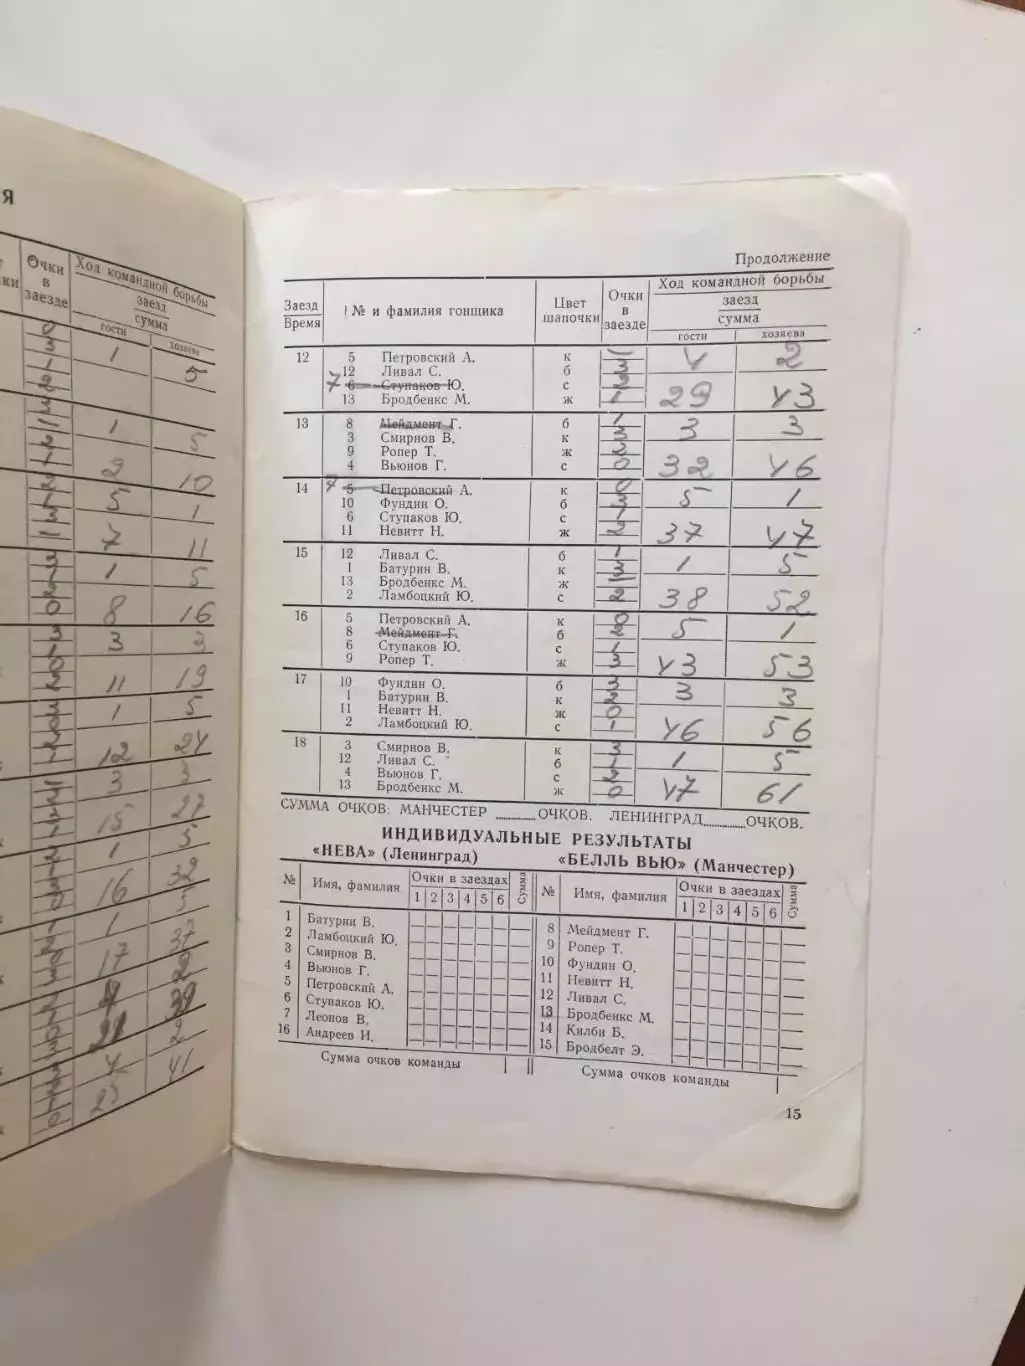 Я
Очки
в
заезде
Ход командной борьбы
заезд
сумма
гости хозяева
1 5
1 5
2 10
5 1
7 11
1 5
8 16
3 3
11 19
1 5
12 24
3 3
15 27
1 5
16 32
1
17 37
39
2
4
25 41
Продолжение
Заезд
Время
№ и фамилия гонщика
Цвет
шапочки
Очки
в
заезде
Ход командной борьбы
заезд
сумма
гости хозяева
12 5 Петровский А. к 4 2
12 Ливал С. б 3
7 6 Ступаков Ю. с 2
13 Бродбенкс М. ж 1 29 43
13 8 Мейдмент Г. б 1 3 3
3 Смирнов В. к 3
9 Ропер Т. ж 2
4 Вьюнов Г. с 0 32 46
14 7 5 Петровский А. к 0 5 1
10 Фундин О. б 3
6 Ступаков Ю. с 1
11 Невитт Н. ж 2 37 47
15 12 Ливал С. б 1 1 5
1 Батурин В. к 3
13 Бродбенкс М. ж
2 Ламбоцкий Ю. с 2 38 52
16 5 Петровский А. к 0 5 1
8 Мейдмент Г. б 2
6 Ступаков Ю. с 1
9 Ропер Т. ж 3 43 53
17 10 Фундин О. б 3 3 3
1 Батурин В. к 2
11 Невитт Н. ж 0
2 Ламбоцкий Ю. с 1 46 56
18 3 Смирнов В. к 3 1 5
12 Ливал С. б 1
4 Вьюнов Г. с 2
13 Бродбенкс М. ж 0 47 61
СУММА ОЧКОВ: МАНЧЕСТЕР ........ОЧКОВ. ЛЕНИНГРАД........ОЧКОВ.
ИНДИВИДУАЛЬНЫЕ РЕЗУЛЬТАТЫ
«НЕВА» (Ленинград) «БЕЛЛЬ ВЬЮ» (Манчестер)
№ Имя, фамилия Очки в заездах Сумма
1 2 3 4 5 6
1 Батурин В.
2 Ламбоцкий Ю.
3 Смирнов В.
4 Вьюнов Г.
5 Петровский А.
6 Ступаков Ю.
7 Леонов В.
16 Андреев И.
Сумма очков команды
№ Имя, фамилия Очки в заездах Сумма
1 2 3 4 5 6
8 Мейдмент Г.
9 Ропер Т.
10 Фундин О.
11 Невитт Н.
12 Ливал С.
13 Бродбенкс М.
14 Килби Б.
15 Бродбелт Э.
Сумма очков команды
15